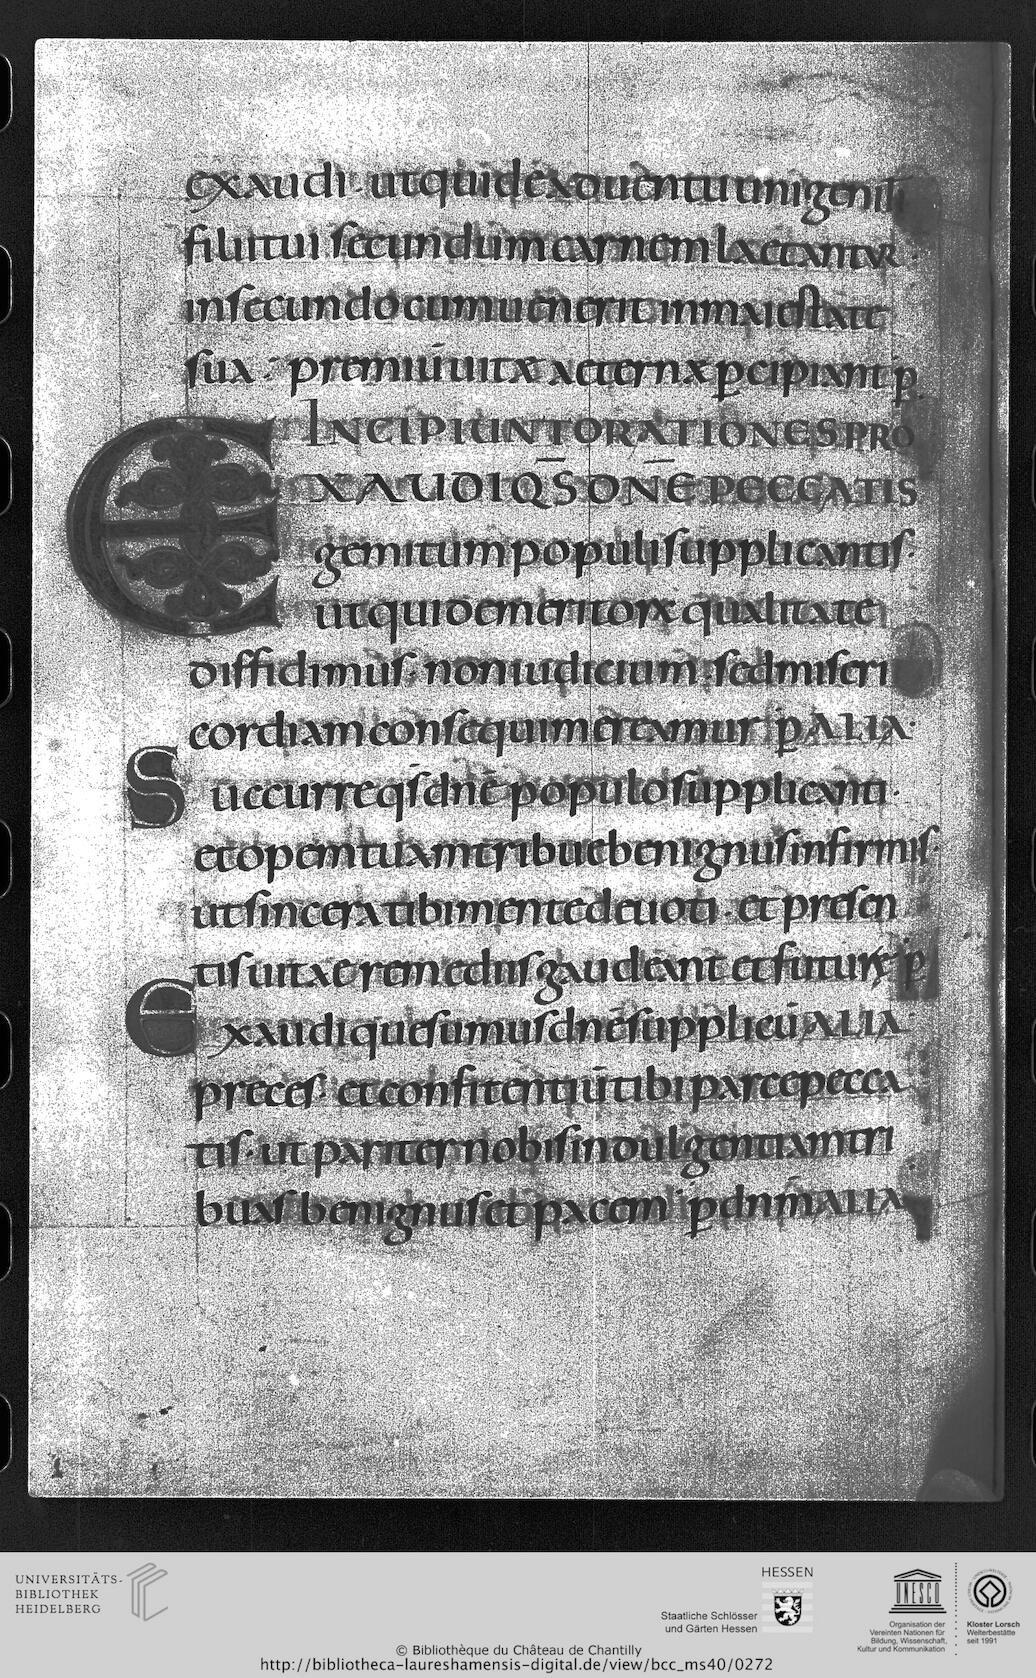 exaudi · utquideaduentuunigeniti
filiitui secundumcarnem laetantur ·
insecundocumuenerit inmaiestate
sua · premiūuitae aeternae pcipiant p
INCIPIUNTORATIONESPRO
EXAUDIQ̄S DN̄E PECCATIS
gemitumpopulisupplicantis ·
utquidemeritorū qualitate
diffidimus · noniudicium · sedmiseri
cordiamconsequimereamur p ALIA ·
Succurreqs̄dn̄epopulosupplicanti ·
etopemtuamtribuebenignusinfirmis ·
utsinceratibimentedeuoti · etpresen
tisuitaeremediisgaudeantetfuturę p
Exaudiquesumusdn̄esupplicū ALIA ·
preces · etconfitentiūtibiparcepecca
tis · utpariternobisindulgentiamtri
buas benignusetpacem p dnm̄ ALIA
UNIVERSITÄTS-
BIBLIOTHEK
HEIDELBERG
HESSEN
Staatliche Schlösser
und Gärten Hessen
UNESCO
Organisation der
Vereinten Nationen für
Bildung, Wissenschaft,
Kultur und Kommunikation
Kloster Lorsch
Welterbestätte
seit 1991
© Bibliothèque du Château de Chantilly
http://bibliotheca-laureshamensis-digital.de/view/bcc_ms40/0272